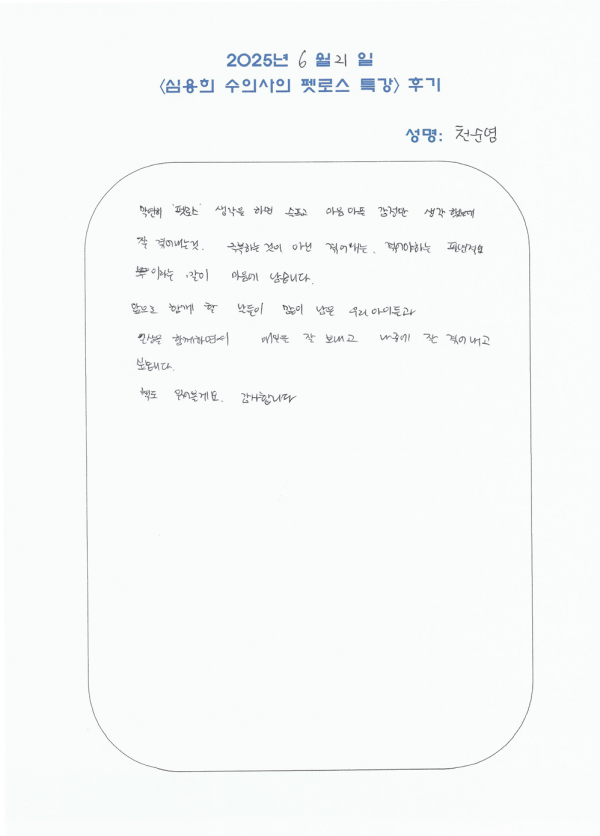 2025년 6월 21일
<심용희 수의사의 펫로스 특강> 후기
성명: 천순염
막연히 '펫로스' 생각을 하면 슬프고 마음 아픈 감정만 생각 했는데
잘 겪어내는것. 극복하는것이 아닌 겪어내는. 겪어야하는
이라는 말이 마음에 남습니다.
앞으로 함께 할 날들이 많이 남은 우리 아이들과
일상을 함께하면서 매일을 잘 보내고 나중에 잘 겪어내고
싶습니다.
책도 읽어볼게요. 감사합니다